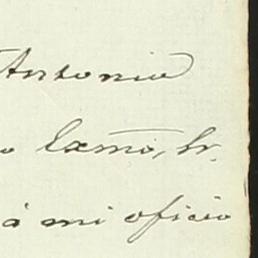 Antonio
o Exmo, Sr.
á mi oficio